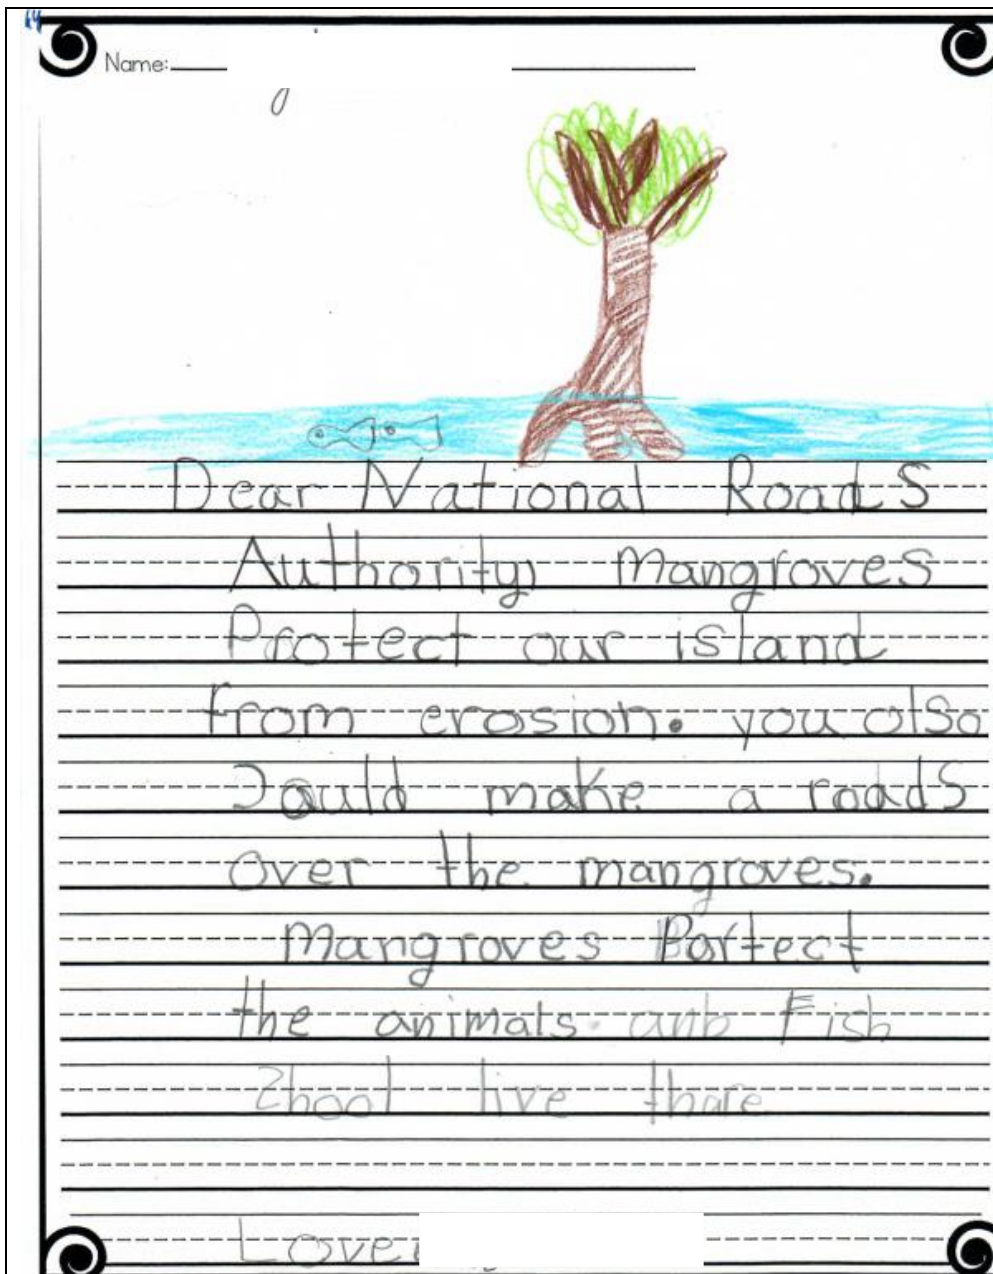 Name:
Dear National Roads
Authority, Mangroves
Protect our island
from erosion. you also
could make a roads
over the mangroves.
Mangroves Portect
the animals. anb Fish
Shool live thare
Love,